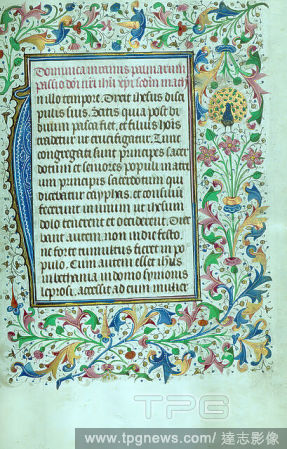 Dominica in ramis palmarum
passio dni nri ihu xpi scdm math
In illo tempore. Dixit ihesus disci
pulis suis. Scitis quia post bi
duum pasca fiet, et filius hois
tradetur ut crucifigatur. Tunc
congregati sunt principes sacer
dotum et seniores populi in atri
um principis sacerdotum qui
dicebatur cayphas, et consiliu
fecerunt in unum ut ihesum
dolo tenerent et occiderent. Dice
bant autem. non in die festo.
ne forte tumultus fieret in po
pulo. Cum autem esset ihus
in bethania in domo symonis
leprosi, accessit ad eum mulier
TPG
www.tpgnews.com/ 達志影像